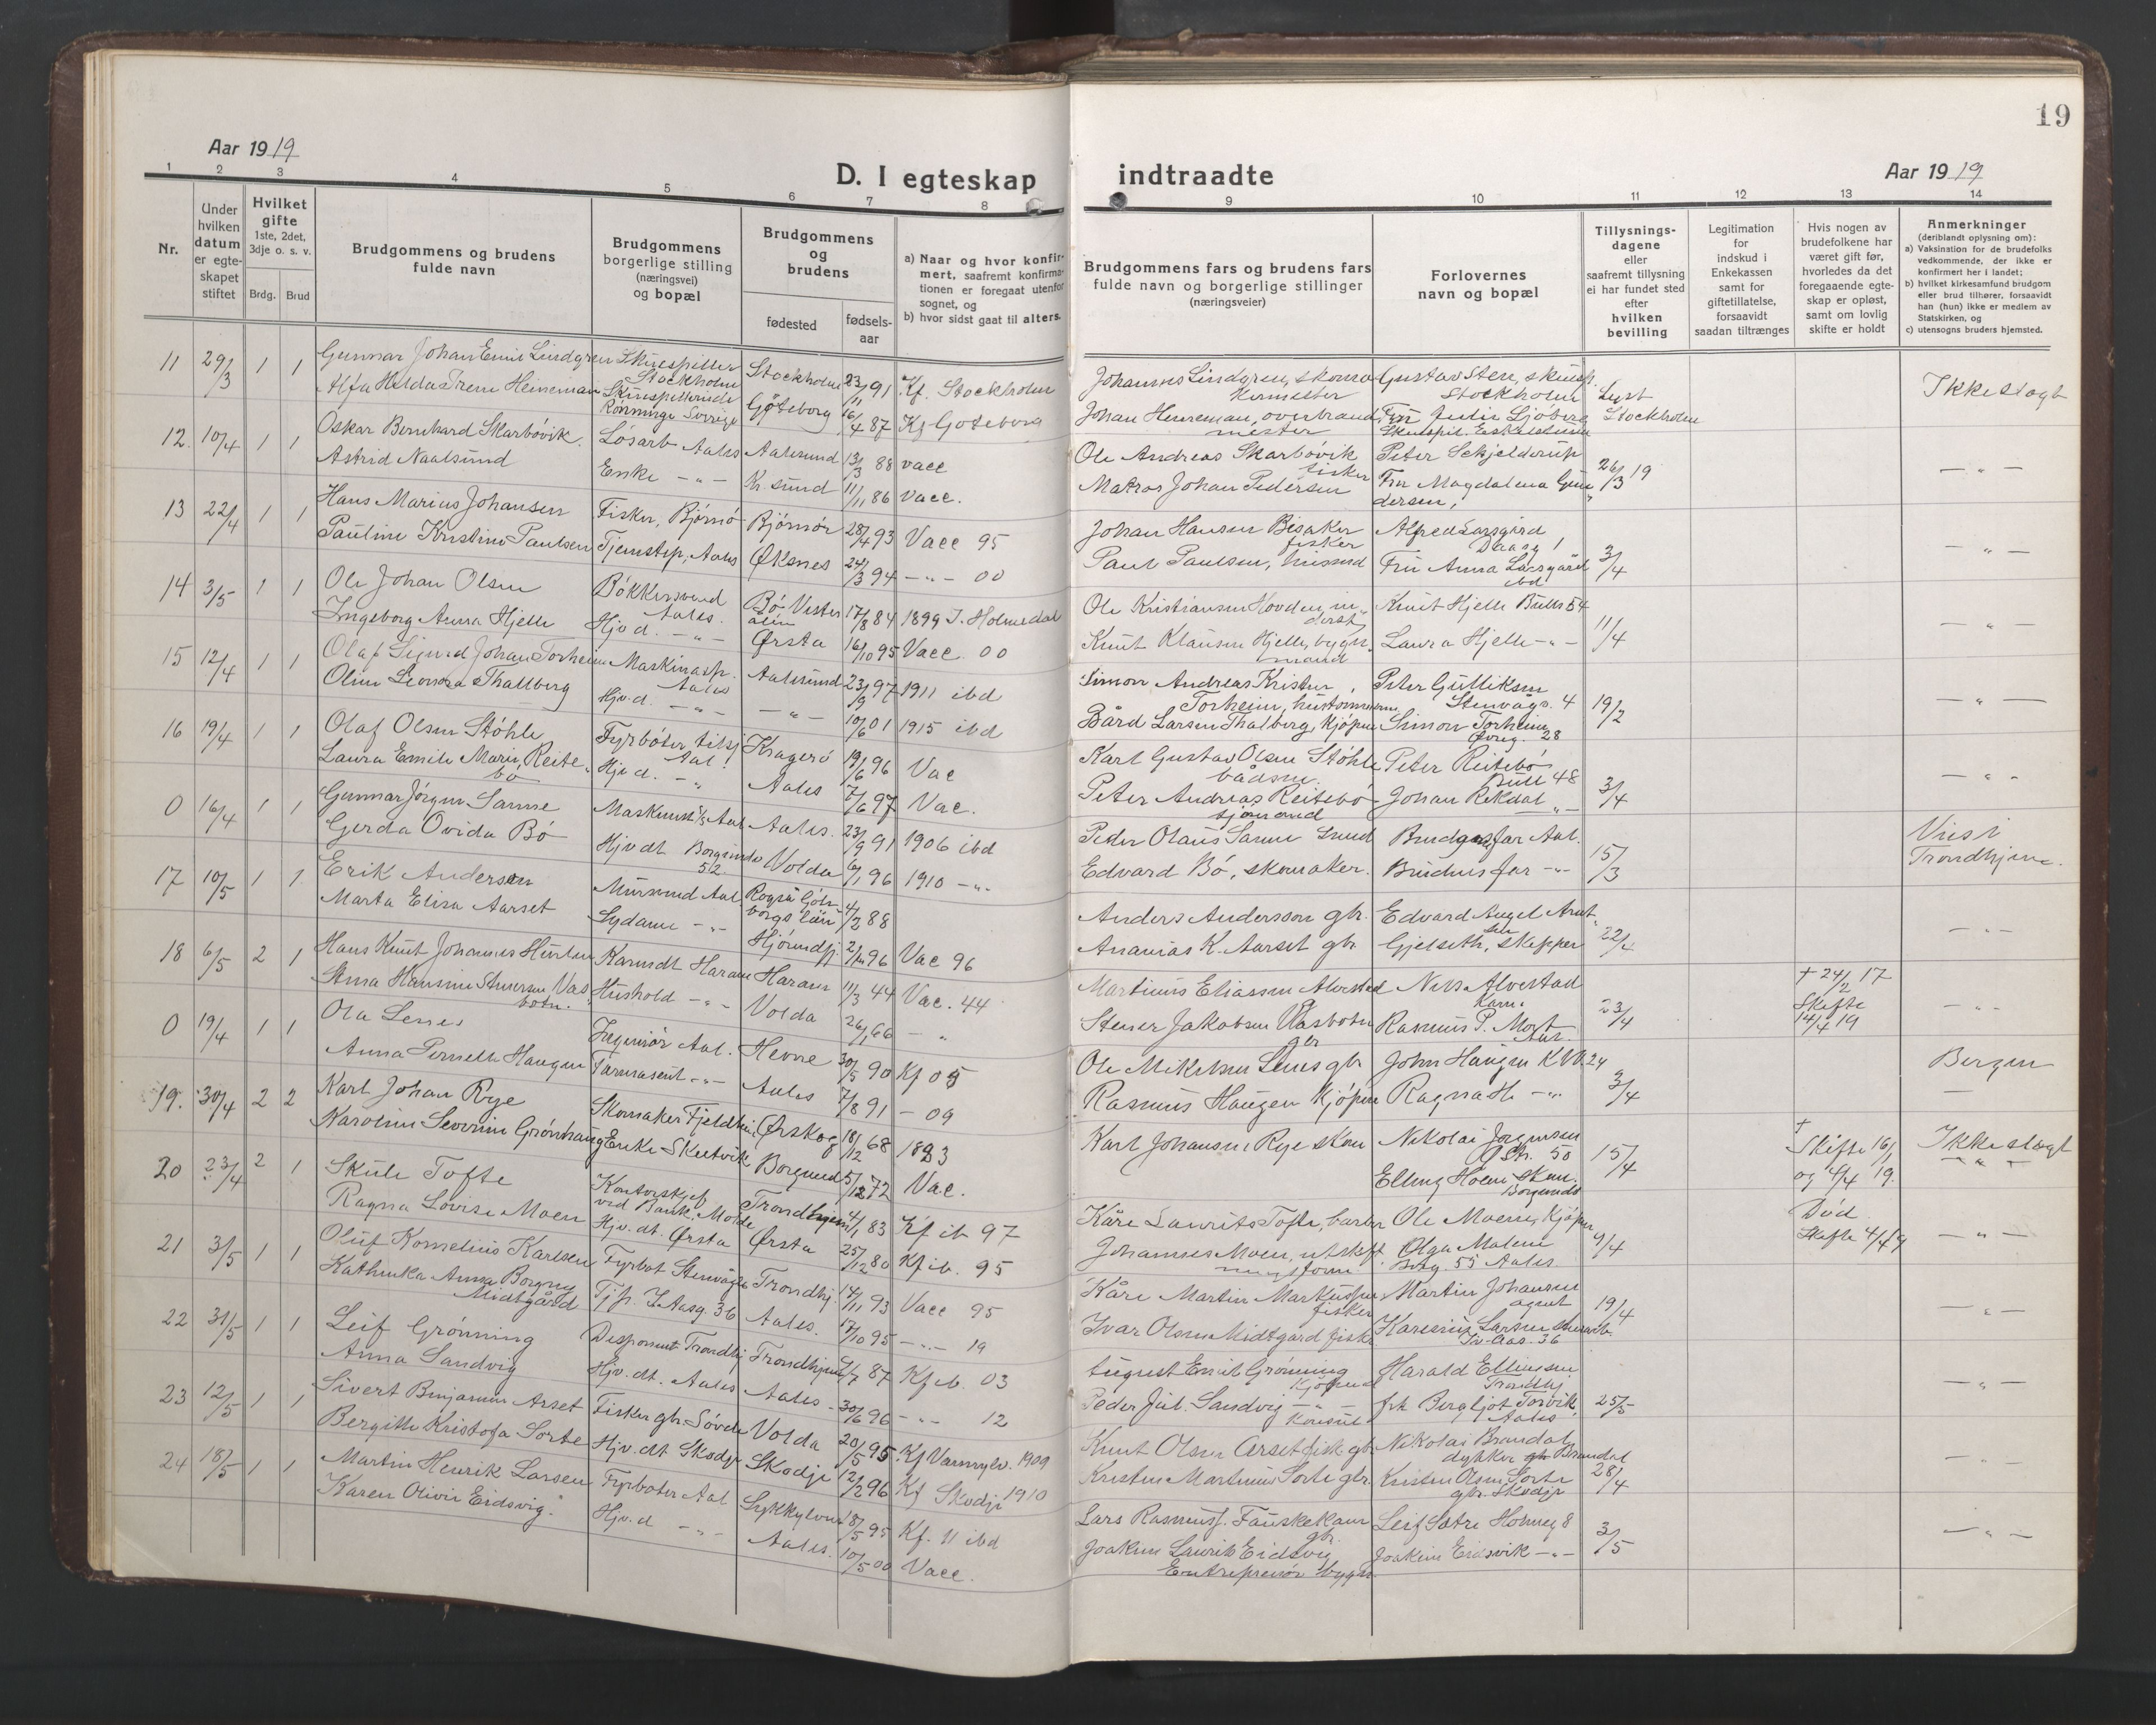 19
Aar 1919
D. I egteskap indtraadte
Aar 1919
1 2 3 4 5 6 7 8 9 10 11 12 13 14
Nr.
Under hvilken datum er egteskapet stiftet
Hvilket gifte 1ste, 2det, 3dje o. s. v.
Brdg. Brud
Brudgommens og brudens fulde navn
Brudgommens borgerlige stilling (næringsvei) og bopæl
Brudgommens og brudens
fødested
fødsels-aar
a) Naar og hvor konfirmert, saafremt konfirmationen er foregaat utenfor sognet, og
b) hvor sidst gaat til alters.
Brudgommens fars og brudens fars fulde navn og borgerlige stillinger (næringsveier)
Forlovernes navn og bopæl
Tillysnings-dagene eller saafremt tillysning ei har fundet sted efter hvilken bevilling
Legitimation for indskud i Enkekassen samt for giftetillatelse, forsaavidt saadan tiltrænges
Hvis nogen av brudefolkene har været gift før, hvorledes da det foregaaende egteskap er opløst, samt om lovlig skifte er holdt
Anmerkninger (deriblandt oplysning om):
a) Vaksination for de brudefolks vedkommende, der ikke er konfirmert her i landet;
b) hvilket kirkesamfund brudgom eller brud tilhører, forsaavidt han (hun) ikke er medlem av Statskirken, og
c) utensogns bruders hjemsted.
11 29/3 1 1 Gunnar Johan Emil Lindgren Skuespiller Stockholm Stockholm 23/11 91 Kf. Stockholm Johannes Lindgren, Gustav Sten, skuesp. Stockholm Lyst Stockholm Ikke slagt
Alfa Hilda Irene Heineman Skuespillerinde Rönninge Sverige Göteborg 16/4 87 Kf Goteborg
12. 10/4 1 1 Oskar Bernhard Skarbövik. Løsarb Aales Aalesund 13/3 88 vacc Ole Andreas Skarbövik fisker Peter Schjelderup 26/3 19 — " —
Astrid Naalsund Enke - " - Kr.sund 11/11 86 Vacc. Matros Johan Pedersen Fru Magdalena Gundersen,
13 22/4 1 1 Hans Marius Johansen Fisker, Bjørnö Bjørnör 28/4 93 Vacc 95 Johan Hansen Bisaker fisker Alfred Larsgård — " —
Pauline Kristine Paulsen Tjenstep, Aales Øksnes 24/3 94 - " - 00 Paul Paulsen, husmd Fru Anna Larsgård ibd 3/4
14 3/5 1 1 Ole Johan Olsen Bökkersvend Aales. Bö Vesterålen 17/8 84 1899 I. Holmedal Ole Kristiansen Hovden, inderst Knut Hjelle Bulls 54 11/4 — " —
Ingeborg Anna Hjelle Hjv d. - " - Ørsta 16/10 95 Vacc. 00 Knut Klausen Hjelle, bygn. mand Laura Hjelle - " -
15 12/4 1 1 Olaf Sigurd Johan Torheim Maskinasp. Aales Aalesund 23/9 97 1911 ibd Simon Andreas Kristen Torheim, Peter Gulliksen Stenvågs. 4 19/2 — " —
Oline Leonora Thallberg Hjv.d. - " - - " - 10/6 01 1915 ibd Bård Larsen Thalberg, kjøpm Simon Torheim 28
16 19/4 1 1 Olaf Olsen Stöhle Fyrböter tilsj Aal. Kragerö 19/6 96 Vac Karl Gustav Olsen Stöhle bådsm. Peter Reitebö Bull 48 — " "
Laura Emilie Marie Reitebö Hjv d. - " Aales 7/6 97 Vac. Peter Andreas Reitebö sjømand Johan Rekdal - " - 3/4
0 16/4 1 1 Gunnar Jörgen Sanne Aal Aales. 23/9 91 1906 ibd Peder Olaus Sanne Brudgs far Aal. 15/3 Vies i Trondhjem.
Gerda Ovida Bö Hjv dt Borgundv 52. Volda 6/1 96 1910 - " - Edvard Bö, skomaker. Brudens far - " -
17 10/5 1 1. Erik Andersen Mursvend Aal 4/2 88 Anders Andersson gbr. Edvard Angel — " —
Marta Elisa Aarset Sydame - " - Hjörundfj. 96 Vac 96 Ananias K. Aarset gbr Gjelseth, skipper 22/4
18 6/5 2 1 Hans Knut Johannes Karmdt Haram Haram 11/3 44 Vac. 44 Martinus Eliassen Alvestad Nils Alvestad † 24/2 17 Skifte 14/4 19 - " -
Anna Hansine Vasbotn. Hushold - " - Volda 26/1 66 - " Stener Jakobsen Vasbotn gbr Rasmus P. Mort Aal. 23/4
0 19/4 1 1 Ola Lenes Ingeniör Aal. Hevne 30/5 90 Kf 05 Ole Mikelsen Lenes gbr John Haugen K.W. 24 3/4 Bergen
Anna Pernelle Haugen Farmaseut - " - Aales 7/8 91 - 09 Rasmus Haugen kjøpm Ragna H. - " - —
19. 30/4 2 2 Karl Johan Rye Skomaker Ørskog 18/12 68 1883 Karl Johansen Rye skom Nikolai Jørgensen Str. 50 15/4 † Skifte 16/1 og 4/4 19. Ikke slagt
Karoline Severine Grönhaug Enke Skutvik Borgund 5/12 72 Vac. Elling Hoem skom. Borgundv — " —
20 23/4 2 1 Skule Tofte Kontorchef ved Bank. Molde Trondhjem 4/1 83 Kf ib 97 Kåre Laurits Tofte, barber Ole Moene, kjøpm 4/4 Død Skifte 4/4 19 — " —
Ragna Lovise Moen Hjv. dt. Ørsta Ørsta 25/12 80 Kf ib. 95 Johannes Moen, utskift Olga Malene Borg. 55 Aales
21 3/5 1 1 Oluf Kornelius Karlsen Fyrböt Stenvågs Trondhj. 14/11 93 Vacc 95 Kåre Martin Markussen fisker Martin Johansen agent 19/4 — " —
Kathinka Anna Borgny Midtgård Tj.p. I. Aasg. 36 Aales. 17/10 95 - " - 19 Ivar Olsen Midtgård fisk. Karenius Larsen Iv. Aas. 36
22 31/5 1 1 Leif Grønning Disponent Trondhj Trondhjem 87 Kf ib. 03 August Emil Grønning kjøpmd Harald Ellingsen Trondhj. — " —
Anna Sandvig Hjv. dt. Aales Aales. 30/6 96 - " - 12 Peder Jul. Sandvig konsul frk Bergljot Torvik Aales 25/5
23 12/5 1 1 Sivert Benjamin Aarset Fisker gbr. Søvde Volda 20/5 95 Kf Vannylv. 1909 Knut Olsen Aarset fisk. gbr. Nikolai Brandal dykker Brandal — " —
Bergitte Kristofa Sorte Hjv. dt Skodje Skodje 12/2 96 Kf Skodje 1910 Kristen Martinus Sorte gbr. Kristen Olsen Sorte gbr. Skodje 28/4
24 18/5 1 1 Martin Henrik Larsen Fyrböter Aal Sykkylven 18/5 95 Kf. 11 ibd Lars Rasmus. Fauskekaur gbr. Leif Sætre Holmeg 8 3/5 — " —
Karen Olivie Eidsvig. Hjv. d - " - Aales. 10/5 00 Vacc. Joakim Laurits Eidsvig Entreprenör bygn. Joakim Eidsvik - " -